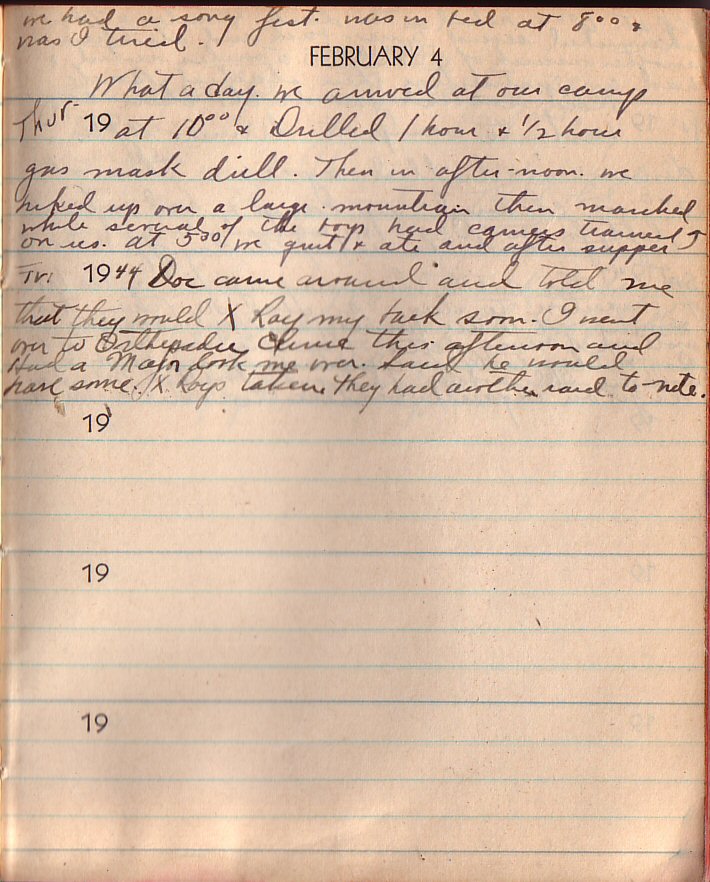 we had a song fest. was in bed at 8⁰⁰ &
was I tired.
FEBRUARY 4
What a day. we arrived at our camp
Thur 19 at 10⁰⁰ & Drilled 1 hour & 1/2 hour
gas mask drill. Then in after-noon. we
hiked up over a large mountain then marched
while several of the boys had camers trained
on us. at 5⁰⁰ we quit & ate and after supper
Fri 1944 Doc came around and told me
that they would X Ray my back soon. I went
over to Orthepadic Clinic this afternoon and
Had a Major look me over. Said he would
have some X Rays taken. they had another raid to-nite.
19
19
19